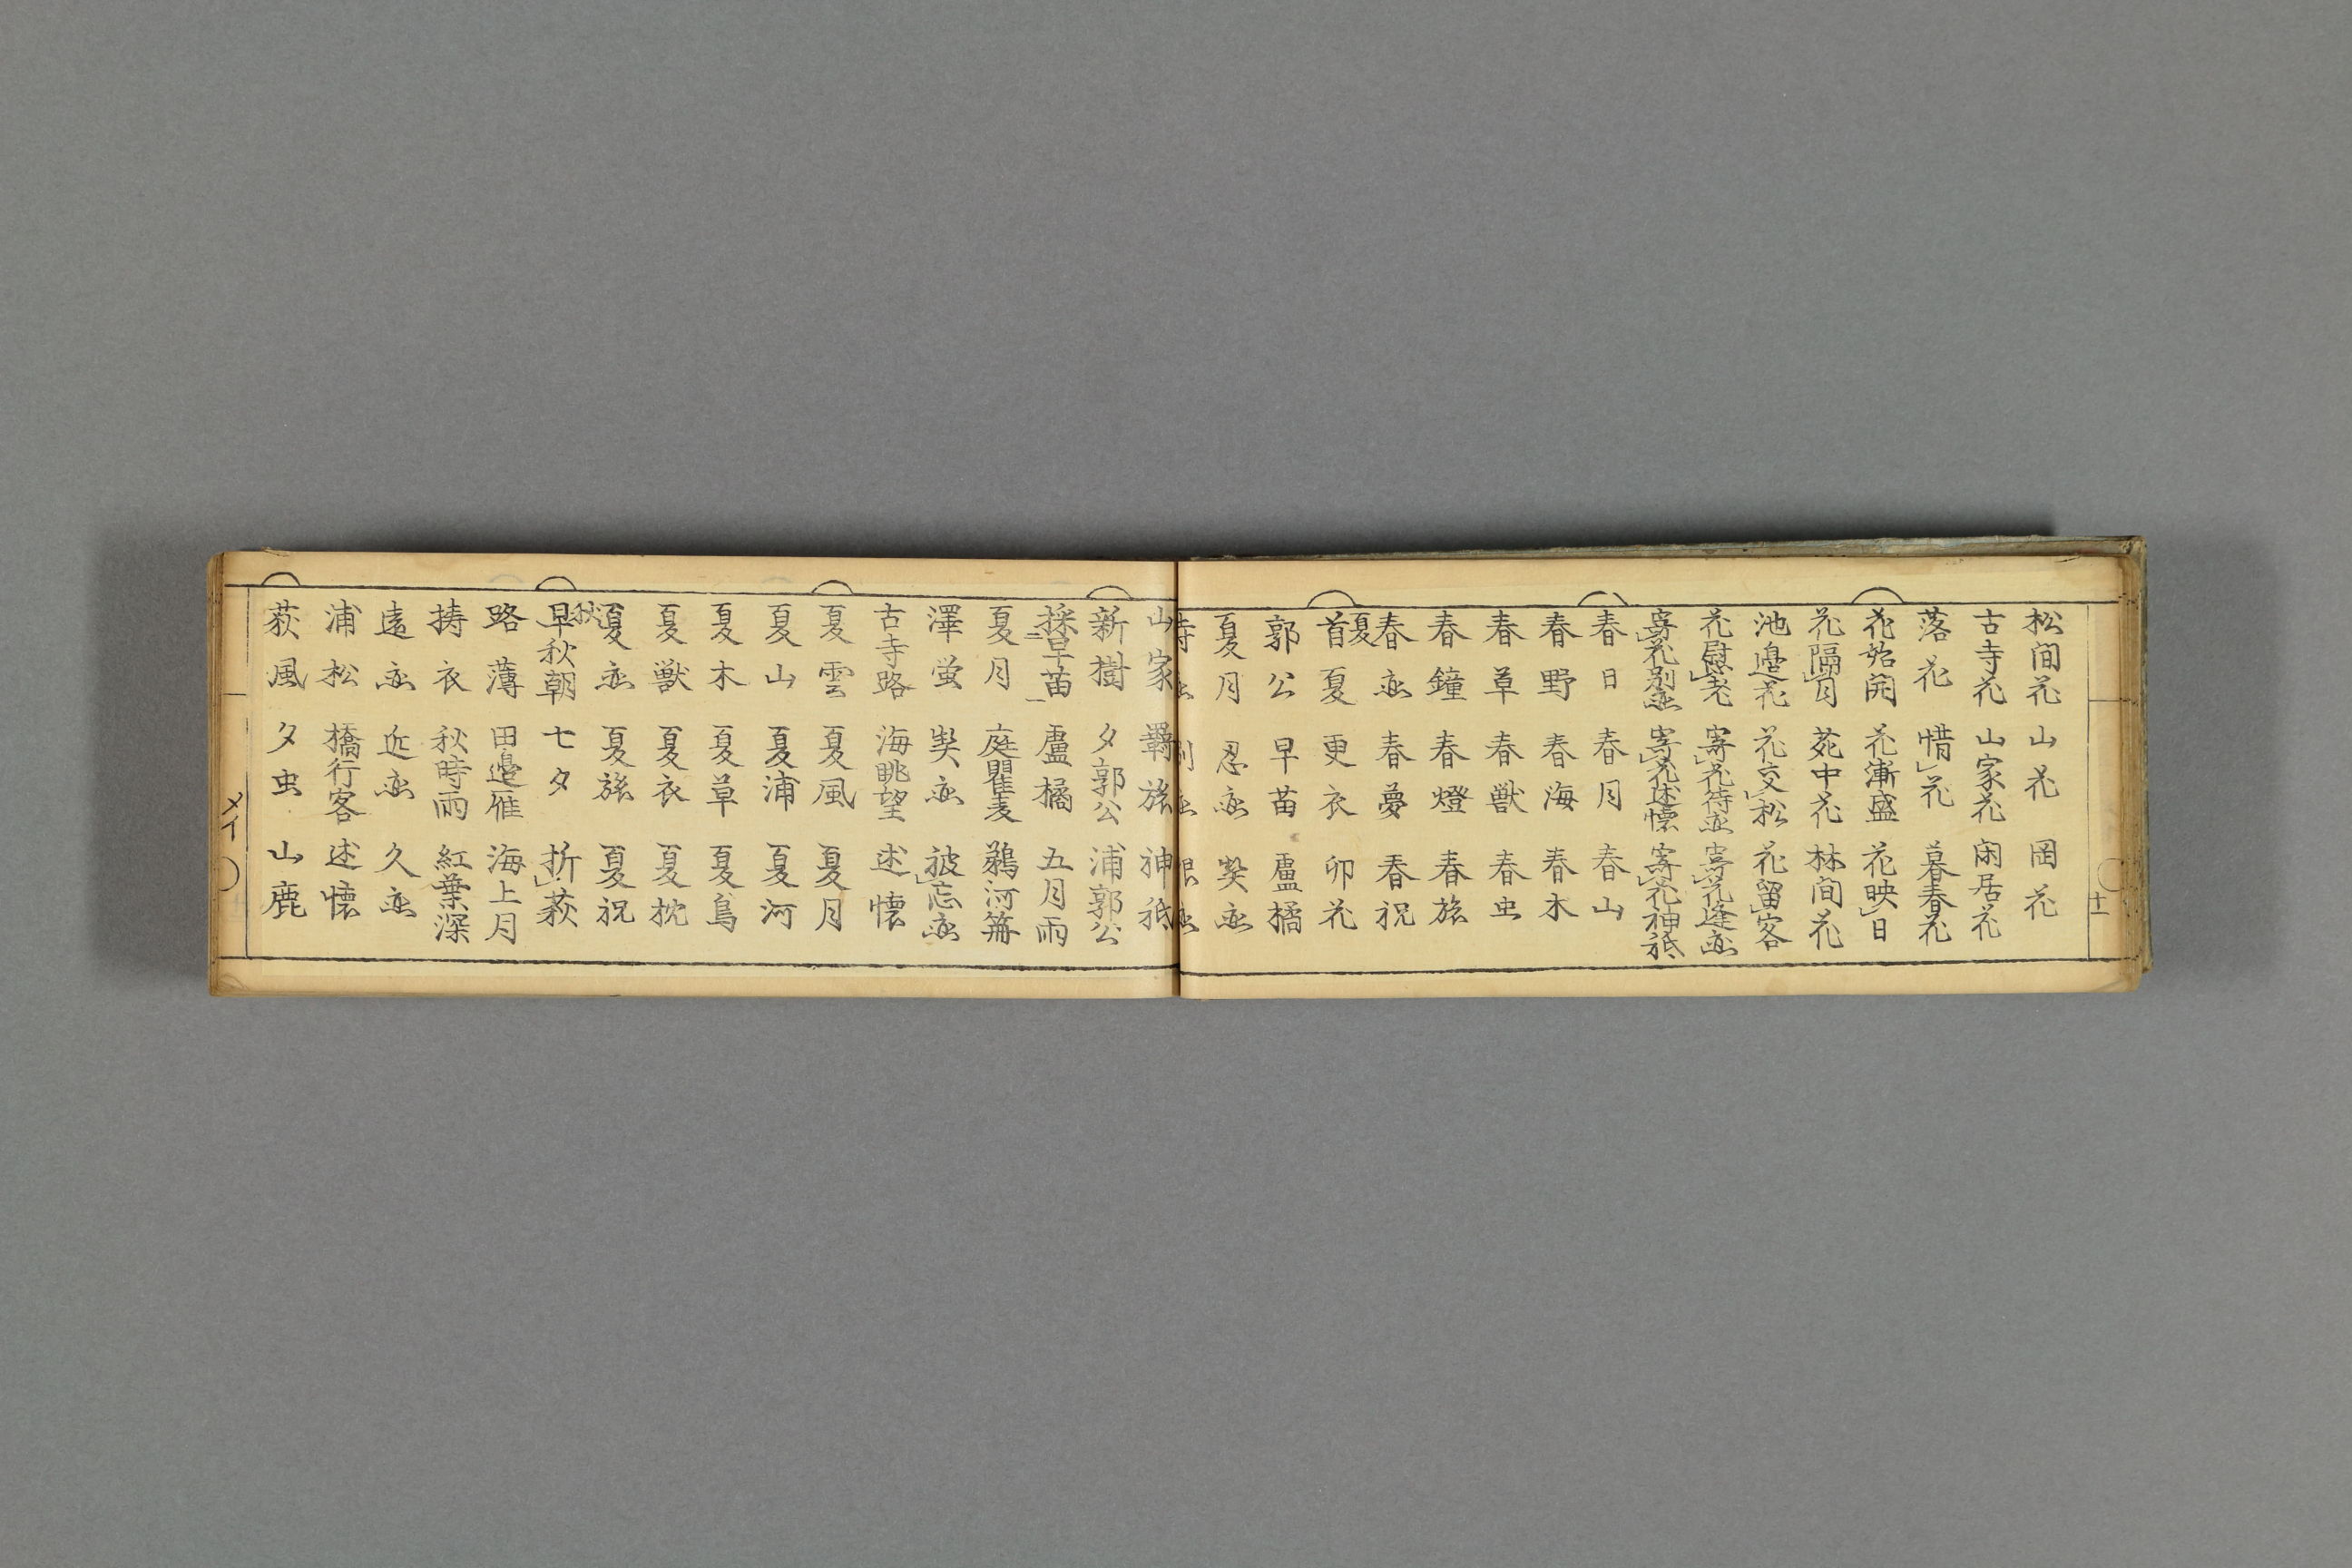 十一
松間花 山花 岡花
古寺花 山家花 閑居花
落花 惜花 暮春花
花始開 花漸盛 花映日
花隔月 苑中花 林間花
池邉花 花交松 花留客
花慰老 寄花待恋 寄花逢恋
寄花別恋 寄花述懐 寄花神祇
春日 春月 春山
春野 春海 春木
春草 春獣 春虫
春鐘 春燈 春旅
春恋 春夢 春祝
夏
首夏 更衣 卯花
郭公 早苗 盧橘
夏月 忍恋 契恋
待恋 別恋 恨恋
山家 羇旅 神祇
新樹 夕郭公 浦郭公
採早苗 盧橘 五月雨
夏月 庭瞿麦 鵜河篝
澤蛍 契恋 被忘恋
古寺路 海眺望 述懐
夏雲 夏風 夏月
夏山 夏浦 夏河
夏木 夏草 夏鳥
夏獣 夏衣 夏枕
夏恋 夏旅 夏祝
秋
早秋朝 七夕 折萩
路薄 田邉雁 海上月
擣衣 秋時雨 紅葉深
遠恋 近恋 久恋
浦松 橋行客 述懐
荻風 夕虫 山鹿
メイ